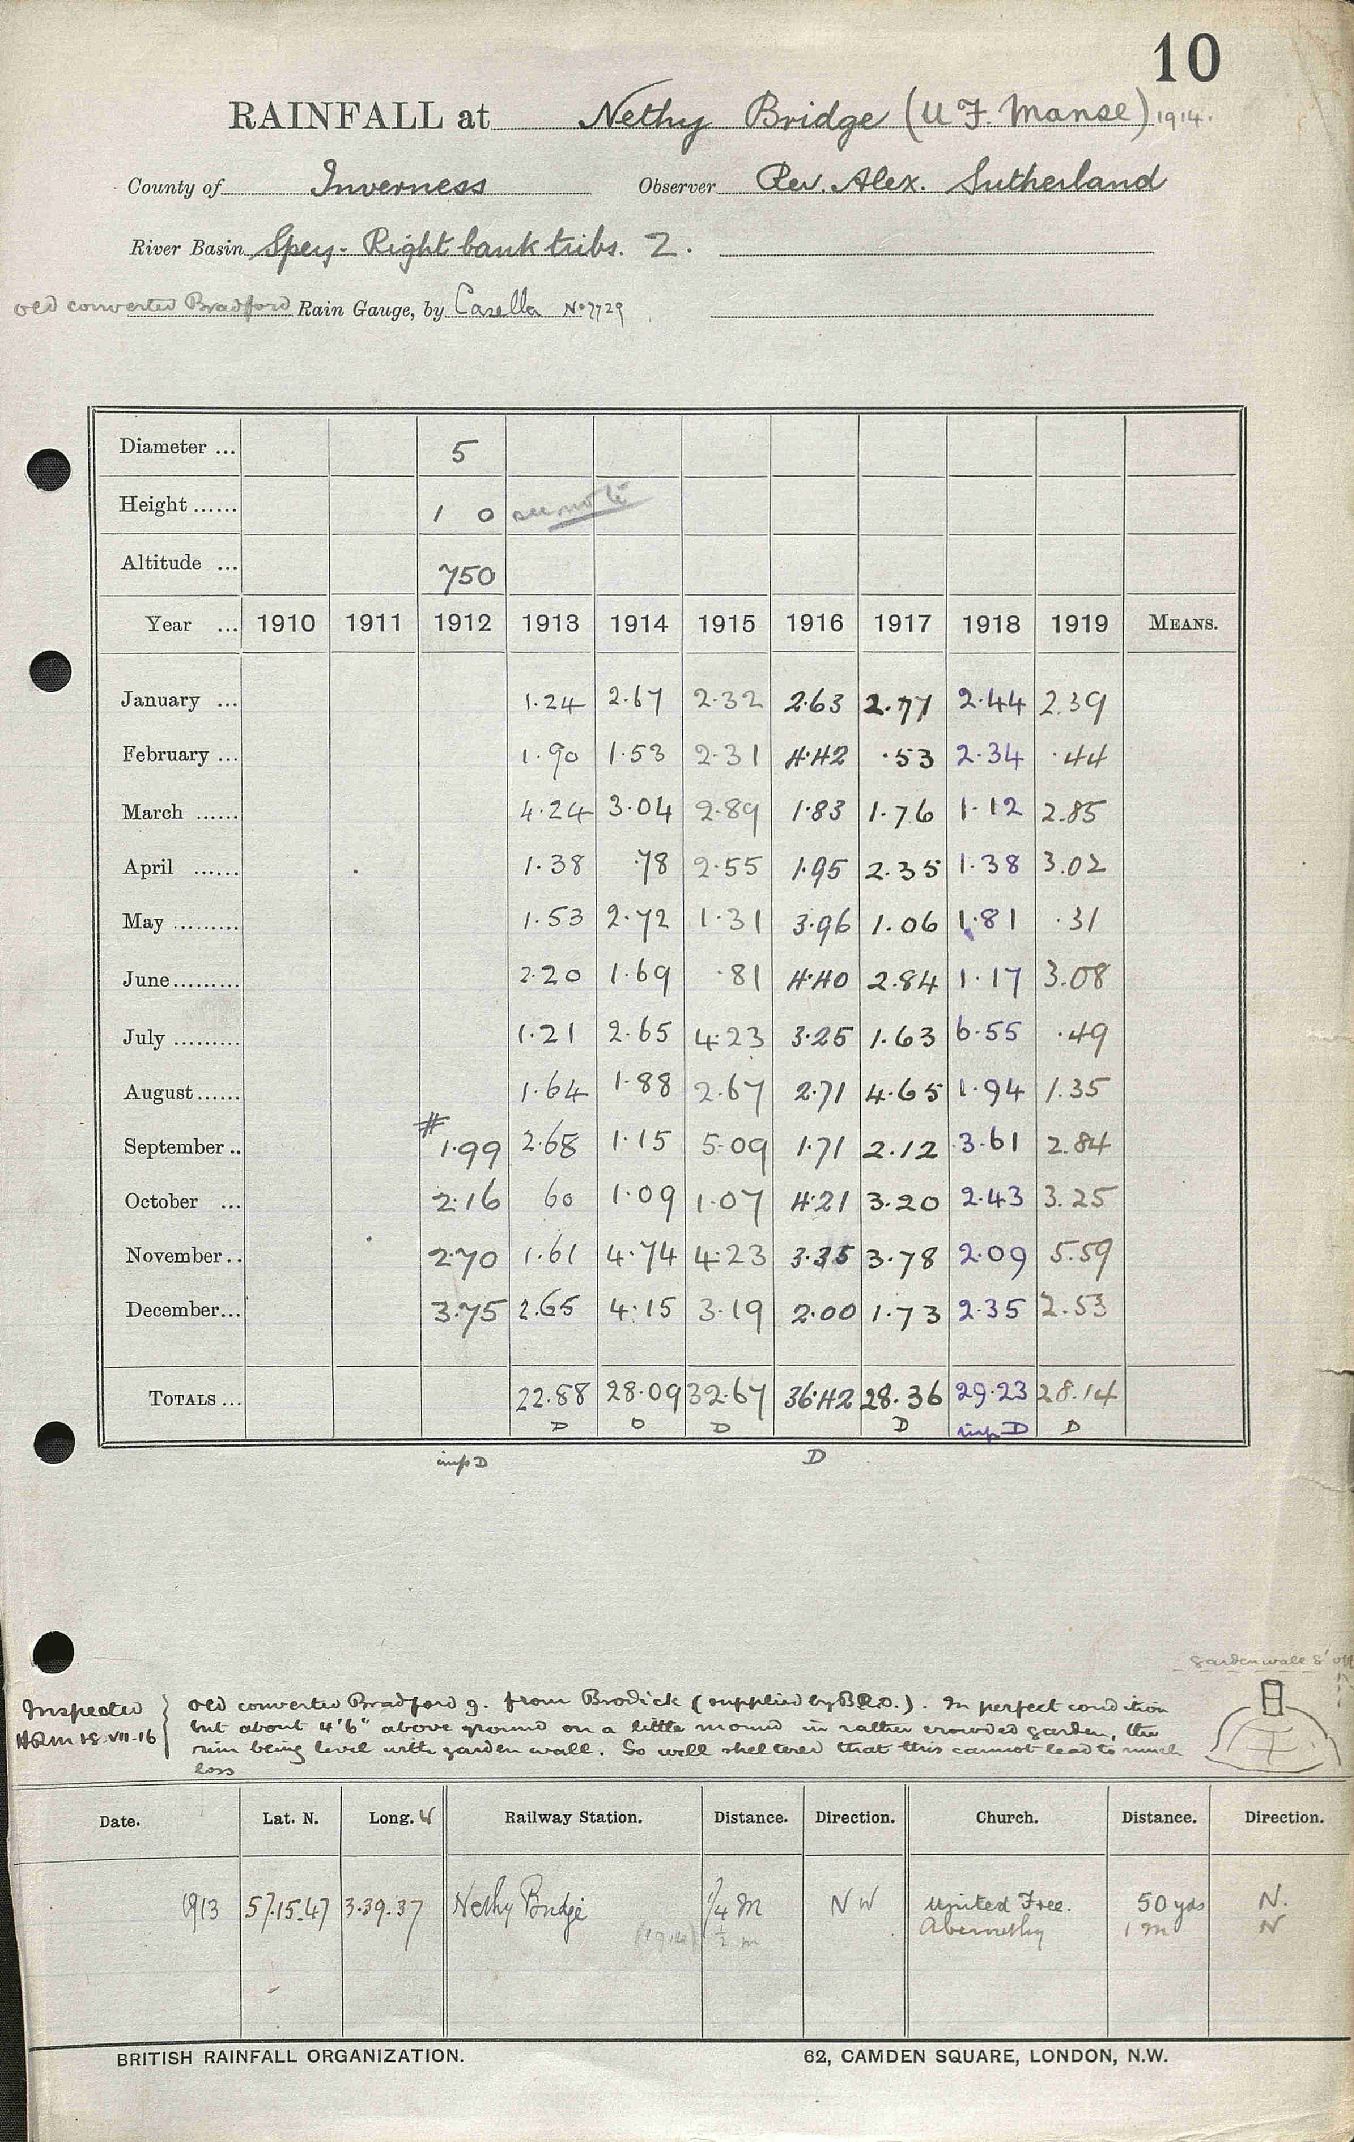 10
RAINFALL at Nethy Bridge (U F. Manse) 1914.
County of Inverness Observer Rev. Alex. Sutherland
River Basin Spey - Right bank tribs. 2.
old converted Bradford Rain Gauge, by Casella No 7729
Diameter ... 5
Height ...... 1 0 see note
Altitude ... 750
Year ... 1910 1911 1912 1913 1914 1915 1916 1917 1918 1919 MEANS.
January ... 1.24 2.67 2.32 2.63 2.77 2.44 2.39
February ... 1.90 1.53 2.31 4.42 .53 2.34 .44
March ...... 4.24 3.04 2.89 1.83 1.76 1.12 2.85
April ...... 1.38 .78 2.55 1.95 2.35 1.38 3.02
May ......... 1.53 2.72 1.31 3.96 1.06 1.81 .31
June ......... 2.20 1.69 .81 4.40 2.84 1.17 3.08
July ......... 1.21 2.65 4.23 3.25 1.63 6.55 .49
August ...... 1.64 1.88 2.67 2.71 4.65 1.94 1.35
September .. # 1.99 2.68 1.15 5.09 1.71 2.12 3.61 2.84
October ... 2.16 60 1.09 1.07 4.21 3.20 2.43 3.25
November .. 2.70 1.61 4.74 4.23 3.35 3.78 2.09 5.59
December ... 3.75 2.65 4.15 3.19 2.00 1.73 2.35 2.53
TOTALS ... 22.88 28.09 32.67 36.42 28.36 29.23 28.14
D D D D imp D D
imp D D
garden wall 8' off
Inspected old converted Bradford g. from Brodick (supplied by B.R.O.). In perfect condition
HRM 18.VII.16 but about 4'6" above ground on a little mound in rather crowded garden, the
rim being level with garden wall. So well sheltered that this cannot lead to much
loss
Date. Lat. N. Long. W Railway Station. Distance. Direction. Church. Distance. Direction.
1913 57.15.47 3.39.37 Nethy Bridge 1/4 m NW United Free. 50 yds N.
(1914) 1/2 m Abernethy 1 m N
BRITISH RAINFALL ORGANIZATION. 62, CAMDEN SQUARE, LONDON, N.W.